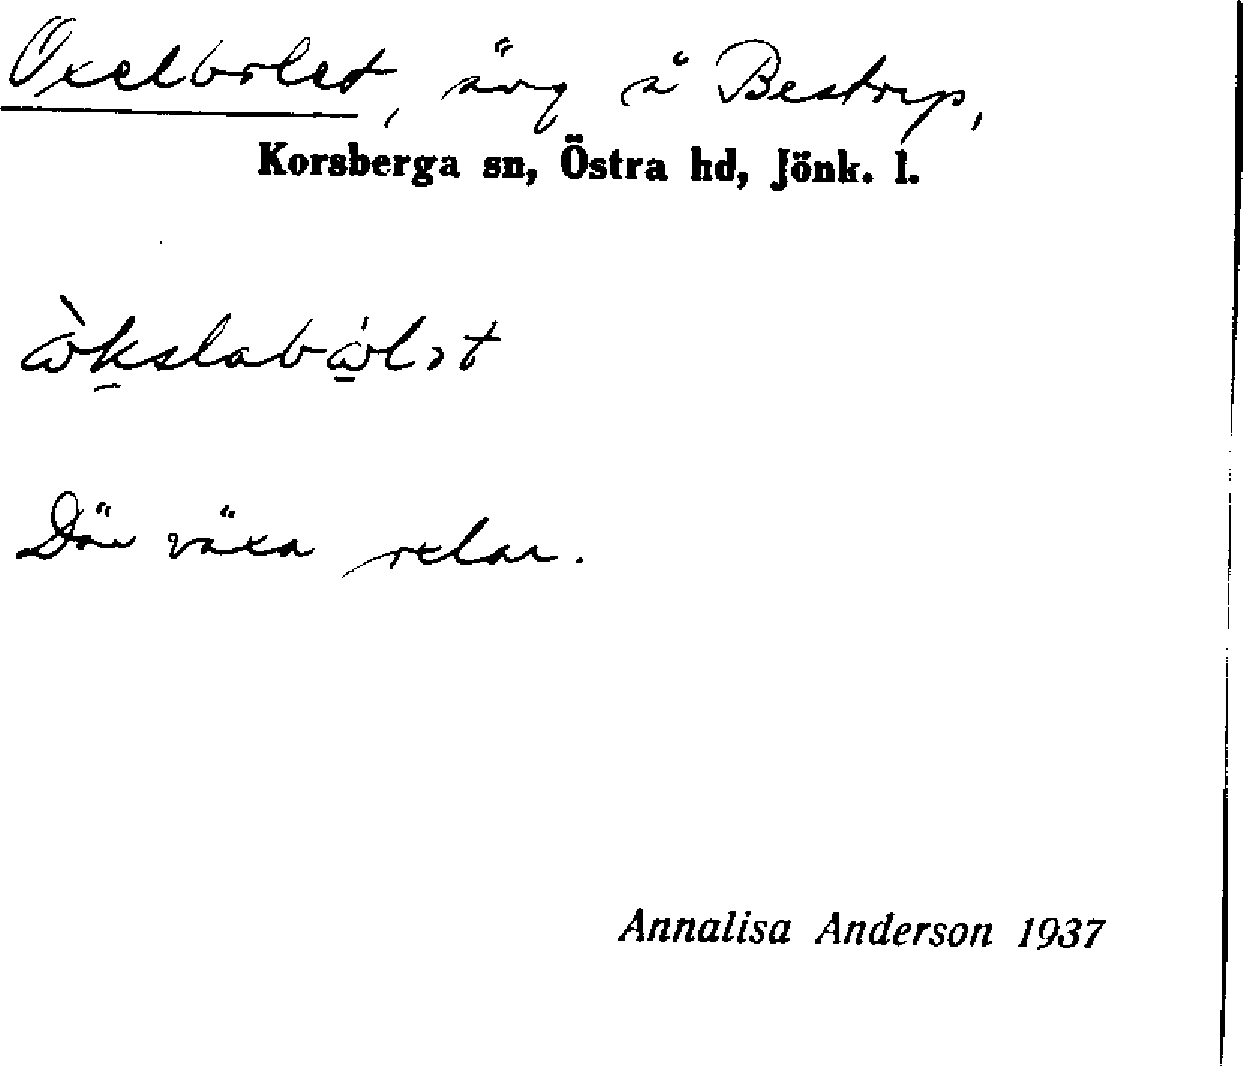 Oxelbolet, äng å Bestorp,
Korsberga sn, Östra hd, Jönk. l.
Där växa oxlar.
Annalisa Anderson 1937